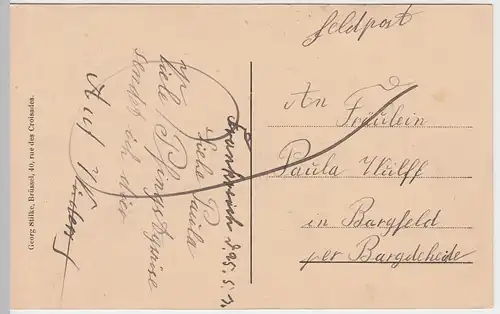 Georg Stilke, Brüssel, 40, rue des Croisades.
Feldpost
An
Fräulein
Paula Wulff
in Bargfeld
per Bargteheide
Frankreich d. 25. 5. 
Liebe Paula
viele Pfingstgrüße
sendet ich dir
Auf